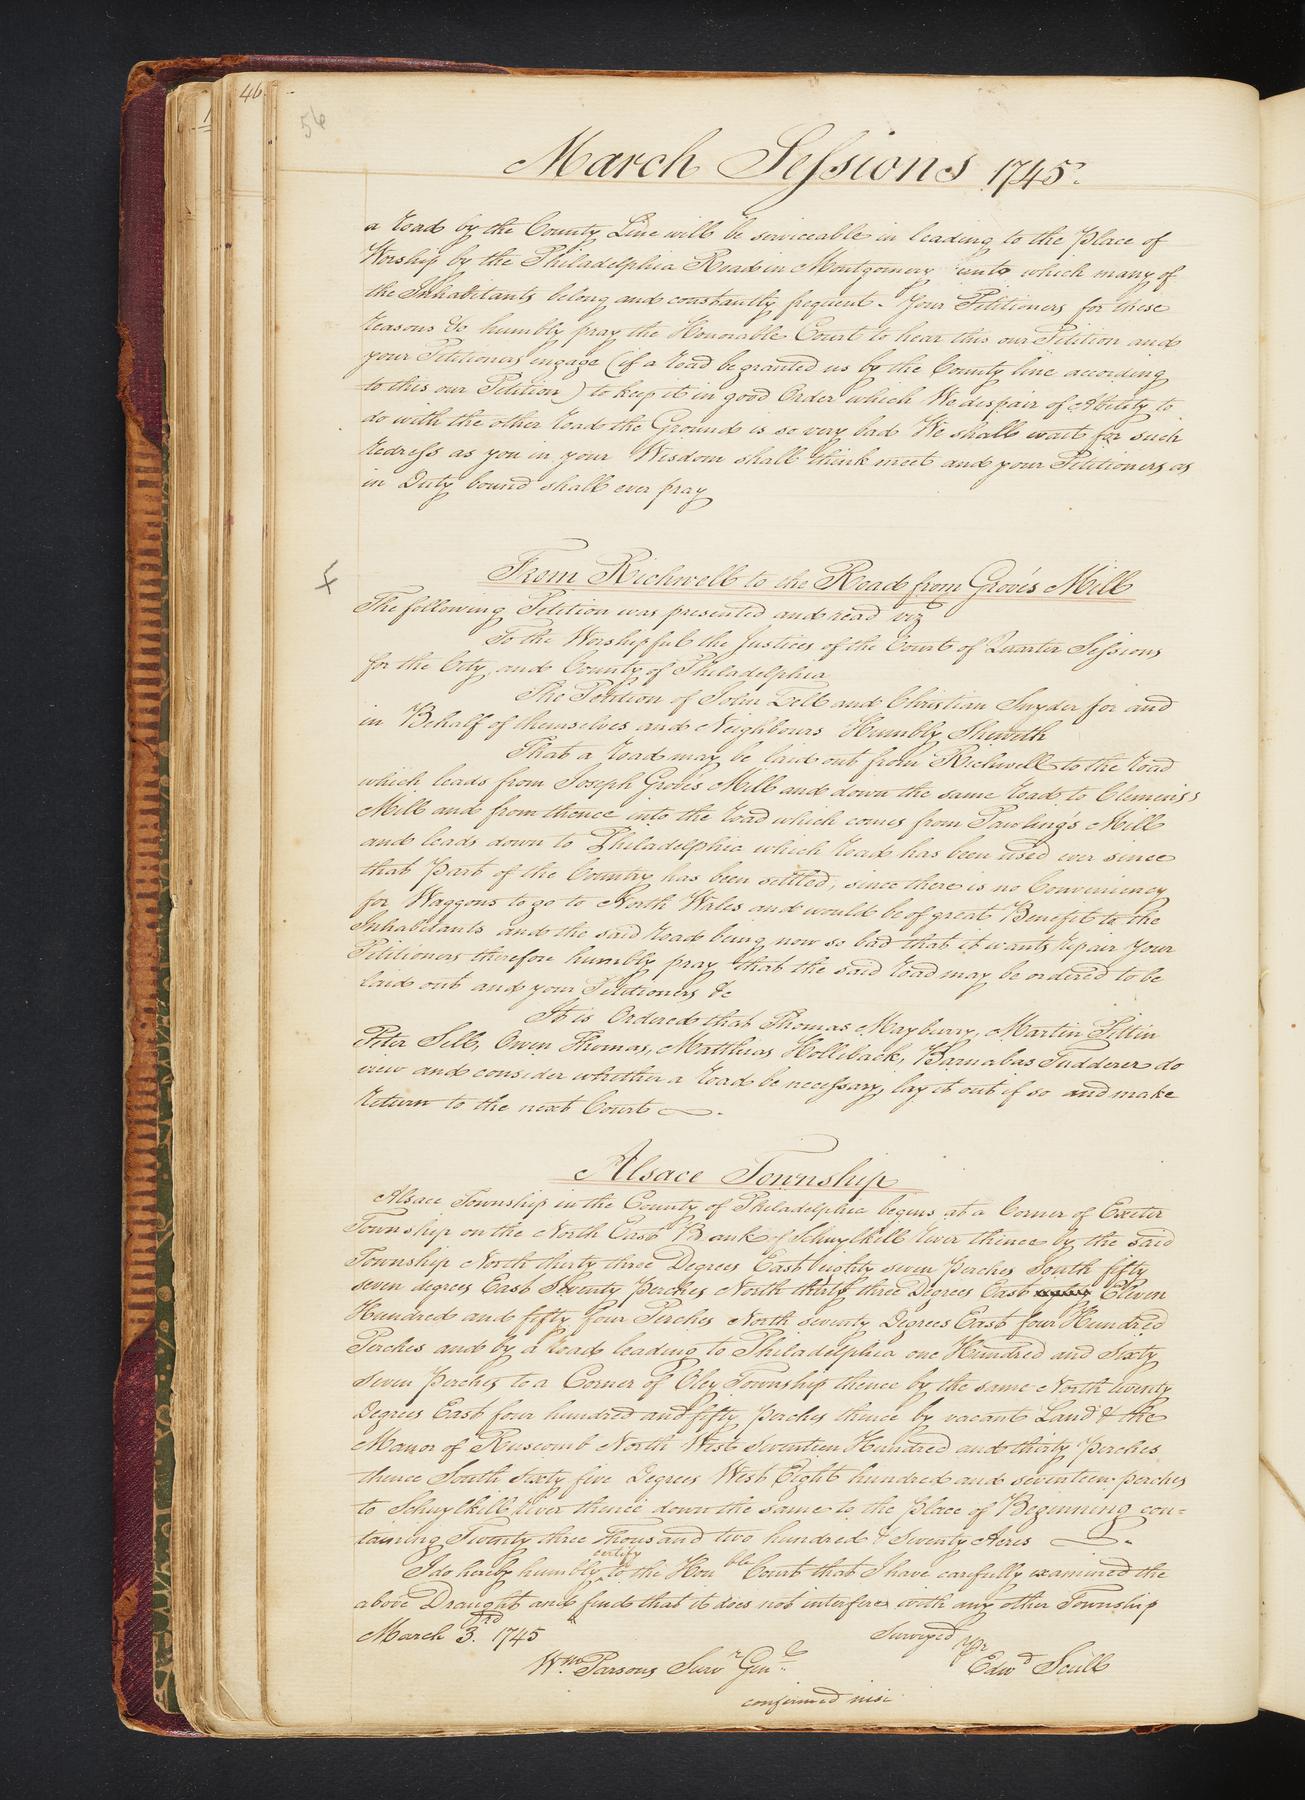 46
56
March Sessions 1745.
a road by the County Line will be serviceable in leading to the place of
Worship by the Philadelphia Road in Montgomery unto which many of
the Inhabitants belong and constantly frequent. Your Petitioners for these
reasons &c humbly pray the Honorable Court to hear this our Petition and
your Petitioners engage (if a road be granted us by the County line according
to this our Petition) to keep it in good Order which We despair of Ability to
do with the other road the Ground is so very bad We shall wait for such
redress as you in your Wisdom shall think meet and your Petitioners as
in Duty bound shall ever pray
From Richwell to the Road from Grove's Mill
The following Petition was presented and read viz
To the Worshipful the Justices of the Court of Quarter Sessions
for the City and County of Philadelphia
The Petition of John and Christian Snyder for and
in Behalf of themselves and Neighbours Humbly Sheweth
That a road may be laid out from Richwell to the road
which leads from Joseph Grove's Mill and down the same road to Clemens's
Mill and from thence into the road which comes from Pawling's Mill
and leads down to Philadelphia which road has been used ever since
that part of the Country has been settled, since there is no Conveniency
for Waggons to go to North Wales and would be of great Benefit to the
Inhabitants and the said road being now so bad that it wants repair Your
Petitioners therefore humbly pray that the said road may be ordered to be
laid out and your Petitioners &c
It is Ordered that Thomas Mayburry, Martin
Peter Sell, Owen Thomas, Matthias Holliback, Barnabas Tudderer do
view and consider whether a road be necessary, lay it out if so and make
return to the next Court
Alsace Township
Alsace Township in the County of Philadelphia begins at a Corner of Exeter
Township on the North East Bank of Schuylkill river thence by the said
Township North thirty three Degrees East eighty seven perches South fifty
seven degrees East Seventy perches North thirty three Degrees East Eleven
Hundred and fifty four Perches North seventy Degrees East four Hundred
Perches and by a road leading to Philadelphia one Hundred and Sixty
seven perches to a Corner of Oley Township thence by the same North twenty
Degrees East four hundred and fifty perches thence by vacant Land & the
Manor of Ruscomb North West Seventeen Hundred and thirty perches
thence South sixty five Degrees West Eight hundred and seventeen perches
to Schuylkill river thence down the same to the place of Beginning con=
taining Twenty three Thousand two hundred & Seventy Acres
I do hereby humbly certify to the Honble Court that I have carefully examined the
above Draught and find that it does not interferes with any other Township
March 3rd. 1745 Surveyed pr
Wm Parsons Survr Genl Edwd Scull
confirmed nisi